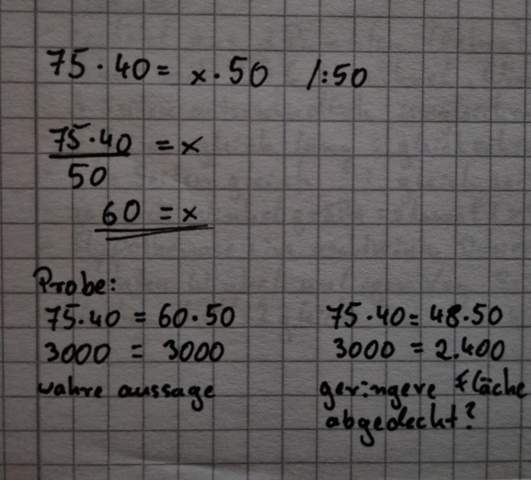 75 · 40 = x · 50 /:50
75 · 40 = x
50
60 = x
Probe:
75 · 40 = 60 · 50
3000 = 3000
wahre aussage
75 · 40 = 48 · 50
3000 = 2.400
geringere Fläche
abgedeckt?